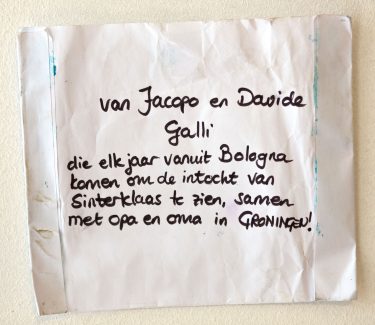 van Jacopo en Davide
Galli
die elk jaar vanuit Bologna
komen om de intocht van
Sinterklaas te zien, samen
met opa en oma in GRONINGEN!